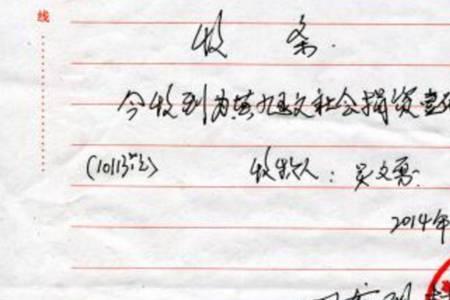 线
收条
今收到为黄旭文社会捐资壹
(10113元) 收款人：吴文勇
2014年